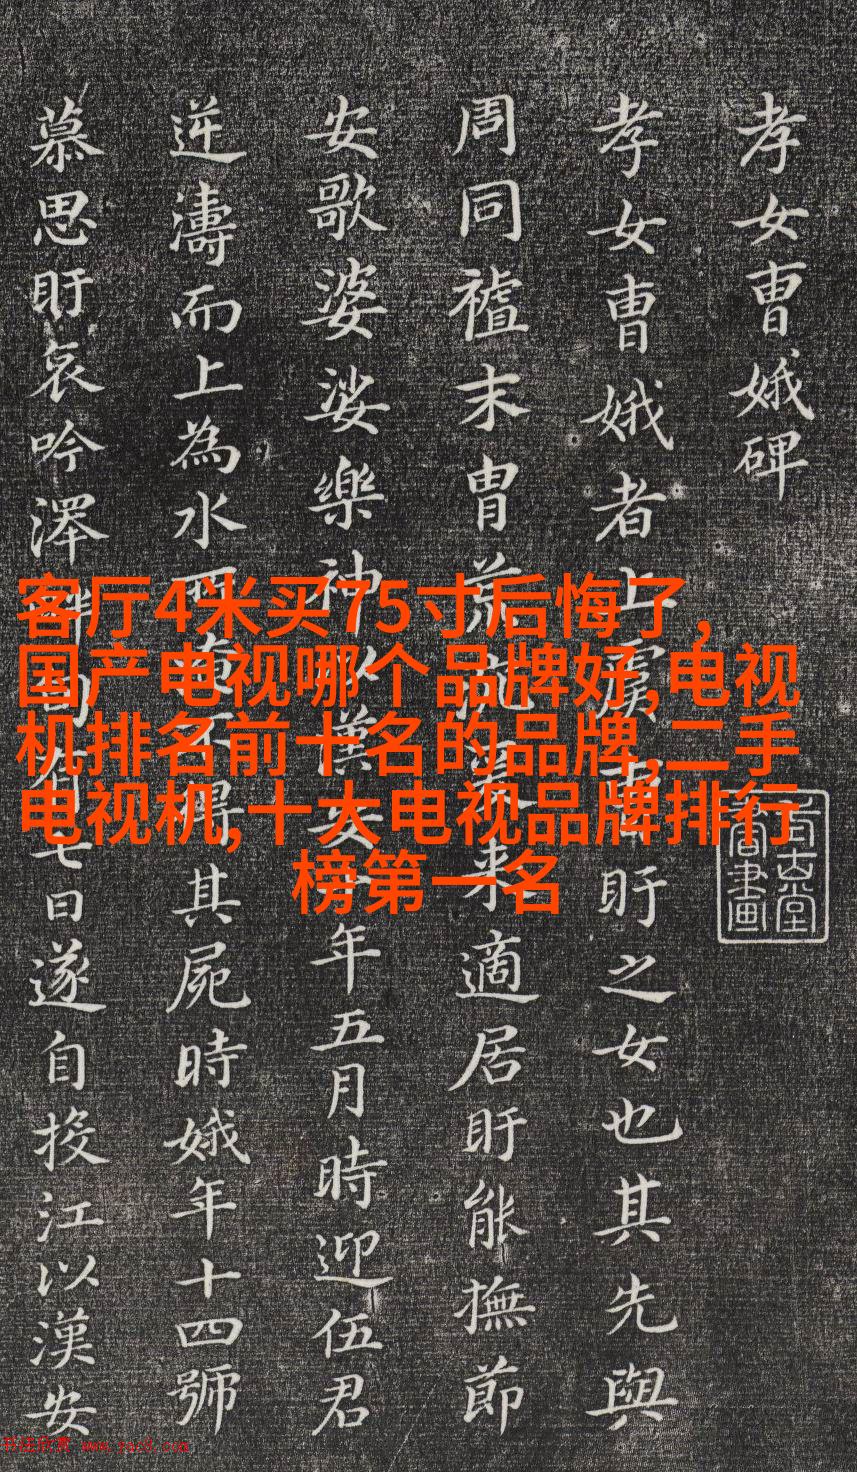 孝女曹娥碑
孝女曹娥者上虞曹盱之女也其先與
周同末胄荒流爰来適居盱能撫節
安歌婆娑樂神以漢安二年五月時迎伍君
逆濤而上為水所淹不得其屍時娥年十四號
慕思盱哀吟澤畔旬有七日遂自投江以漢安
客厅4米买75寸后悔了,
国产电视哪个品牌好,电视
机排名前十名的品牌,二手
电视机,十大电视品牌排行
榜第一名
书法欣赏 www.yac8.com